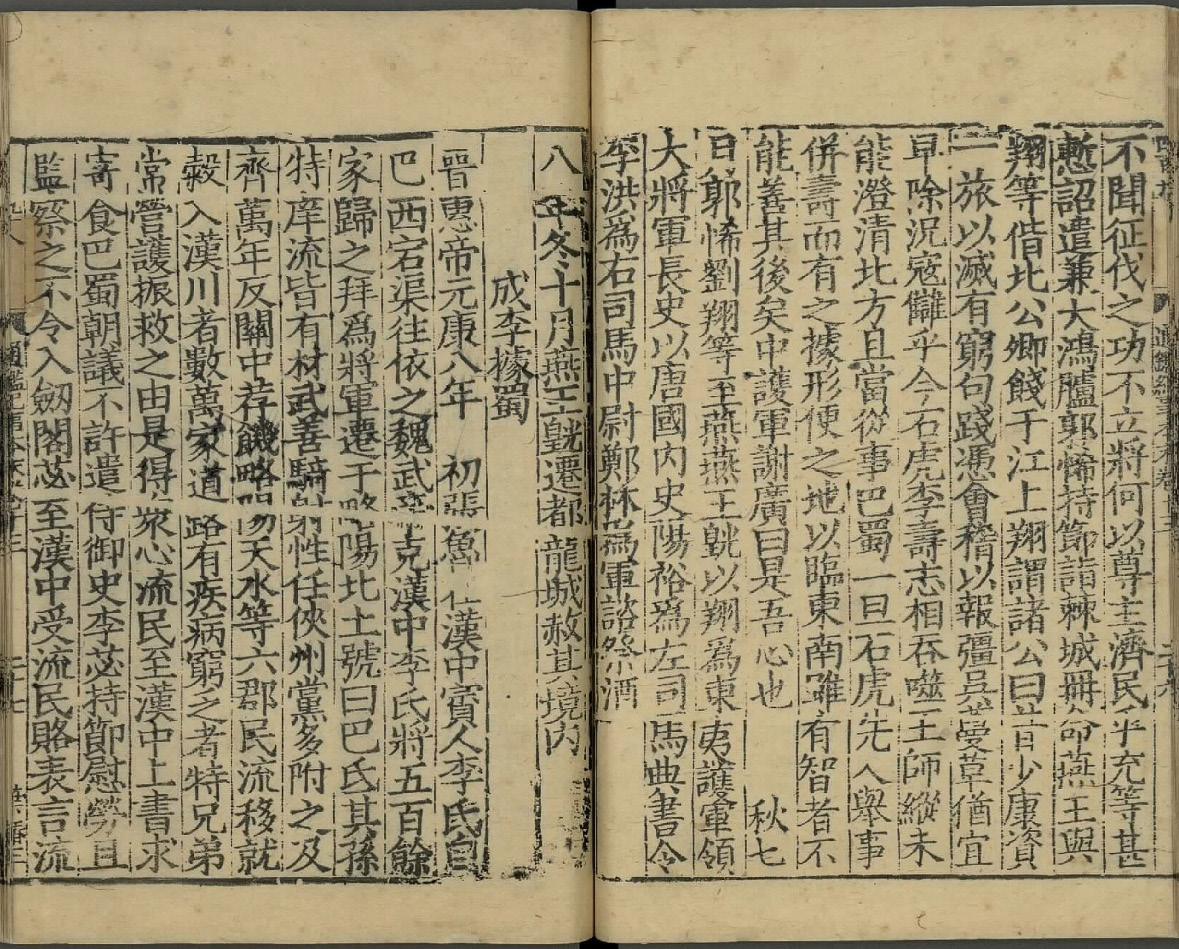 不聞征伐之功不立將何以尊主濟民乎充等甚
慙詔遣兼大鴻臚郭悕持節詣棘城冊命燕王與
翔等偕北公卿餞于江上翔謂諸公曰昔少康資
一旅以滅有窮句踐憑會稽以報彊吳蔓草猶宜
早除況寇讎乎今石虎李壽志相吞噬王師縱未
能澄清北方且當從事巴蜀一旦石虎先人舉事
併壽而有之據形便之地以臨東南雖有智者不
能善其後矣中護軍謝廣曰是吾心也 秋七
月郭悕劉翔等至燕燕王皝以翔為東夷護軍領
大將軍長史以唐國內史陽裕為左司馬典書令
李洪為右司馬中尉鄭林為軍諮祭酒
八年冬十月燕王皝遷都龍城赦其境內
成李據蜀
晉惠帝元康八年 初張魯在漢中賨人李氏自
巴西宕渠往依之魏武帝克漢中李氏將五百餘
家歸之拜為將軍遷于略陽北土號曰巴氐其孫
特庠流皆有材武善騎射性任俠州黨多附之及
齊萬年反關中荐饑略陽天水等六郡民流移就
穀入漢川者數萬家道路有疾病窮乏者特兄弟
常營護振救之由是得衆心流民至漢中上書求
寄食巴蜀朝議不許遣侍御史李苾持節慰勞且
監察之不令入劒閣苾至漢中受流民賂表言流